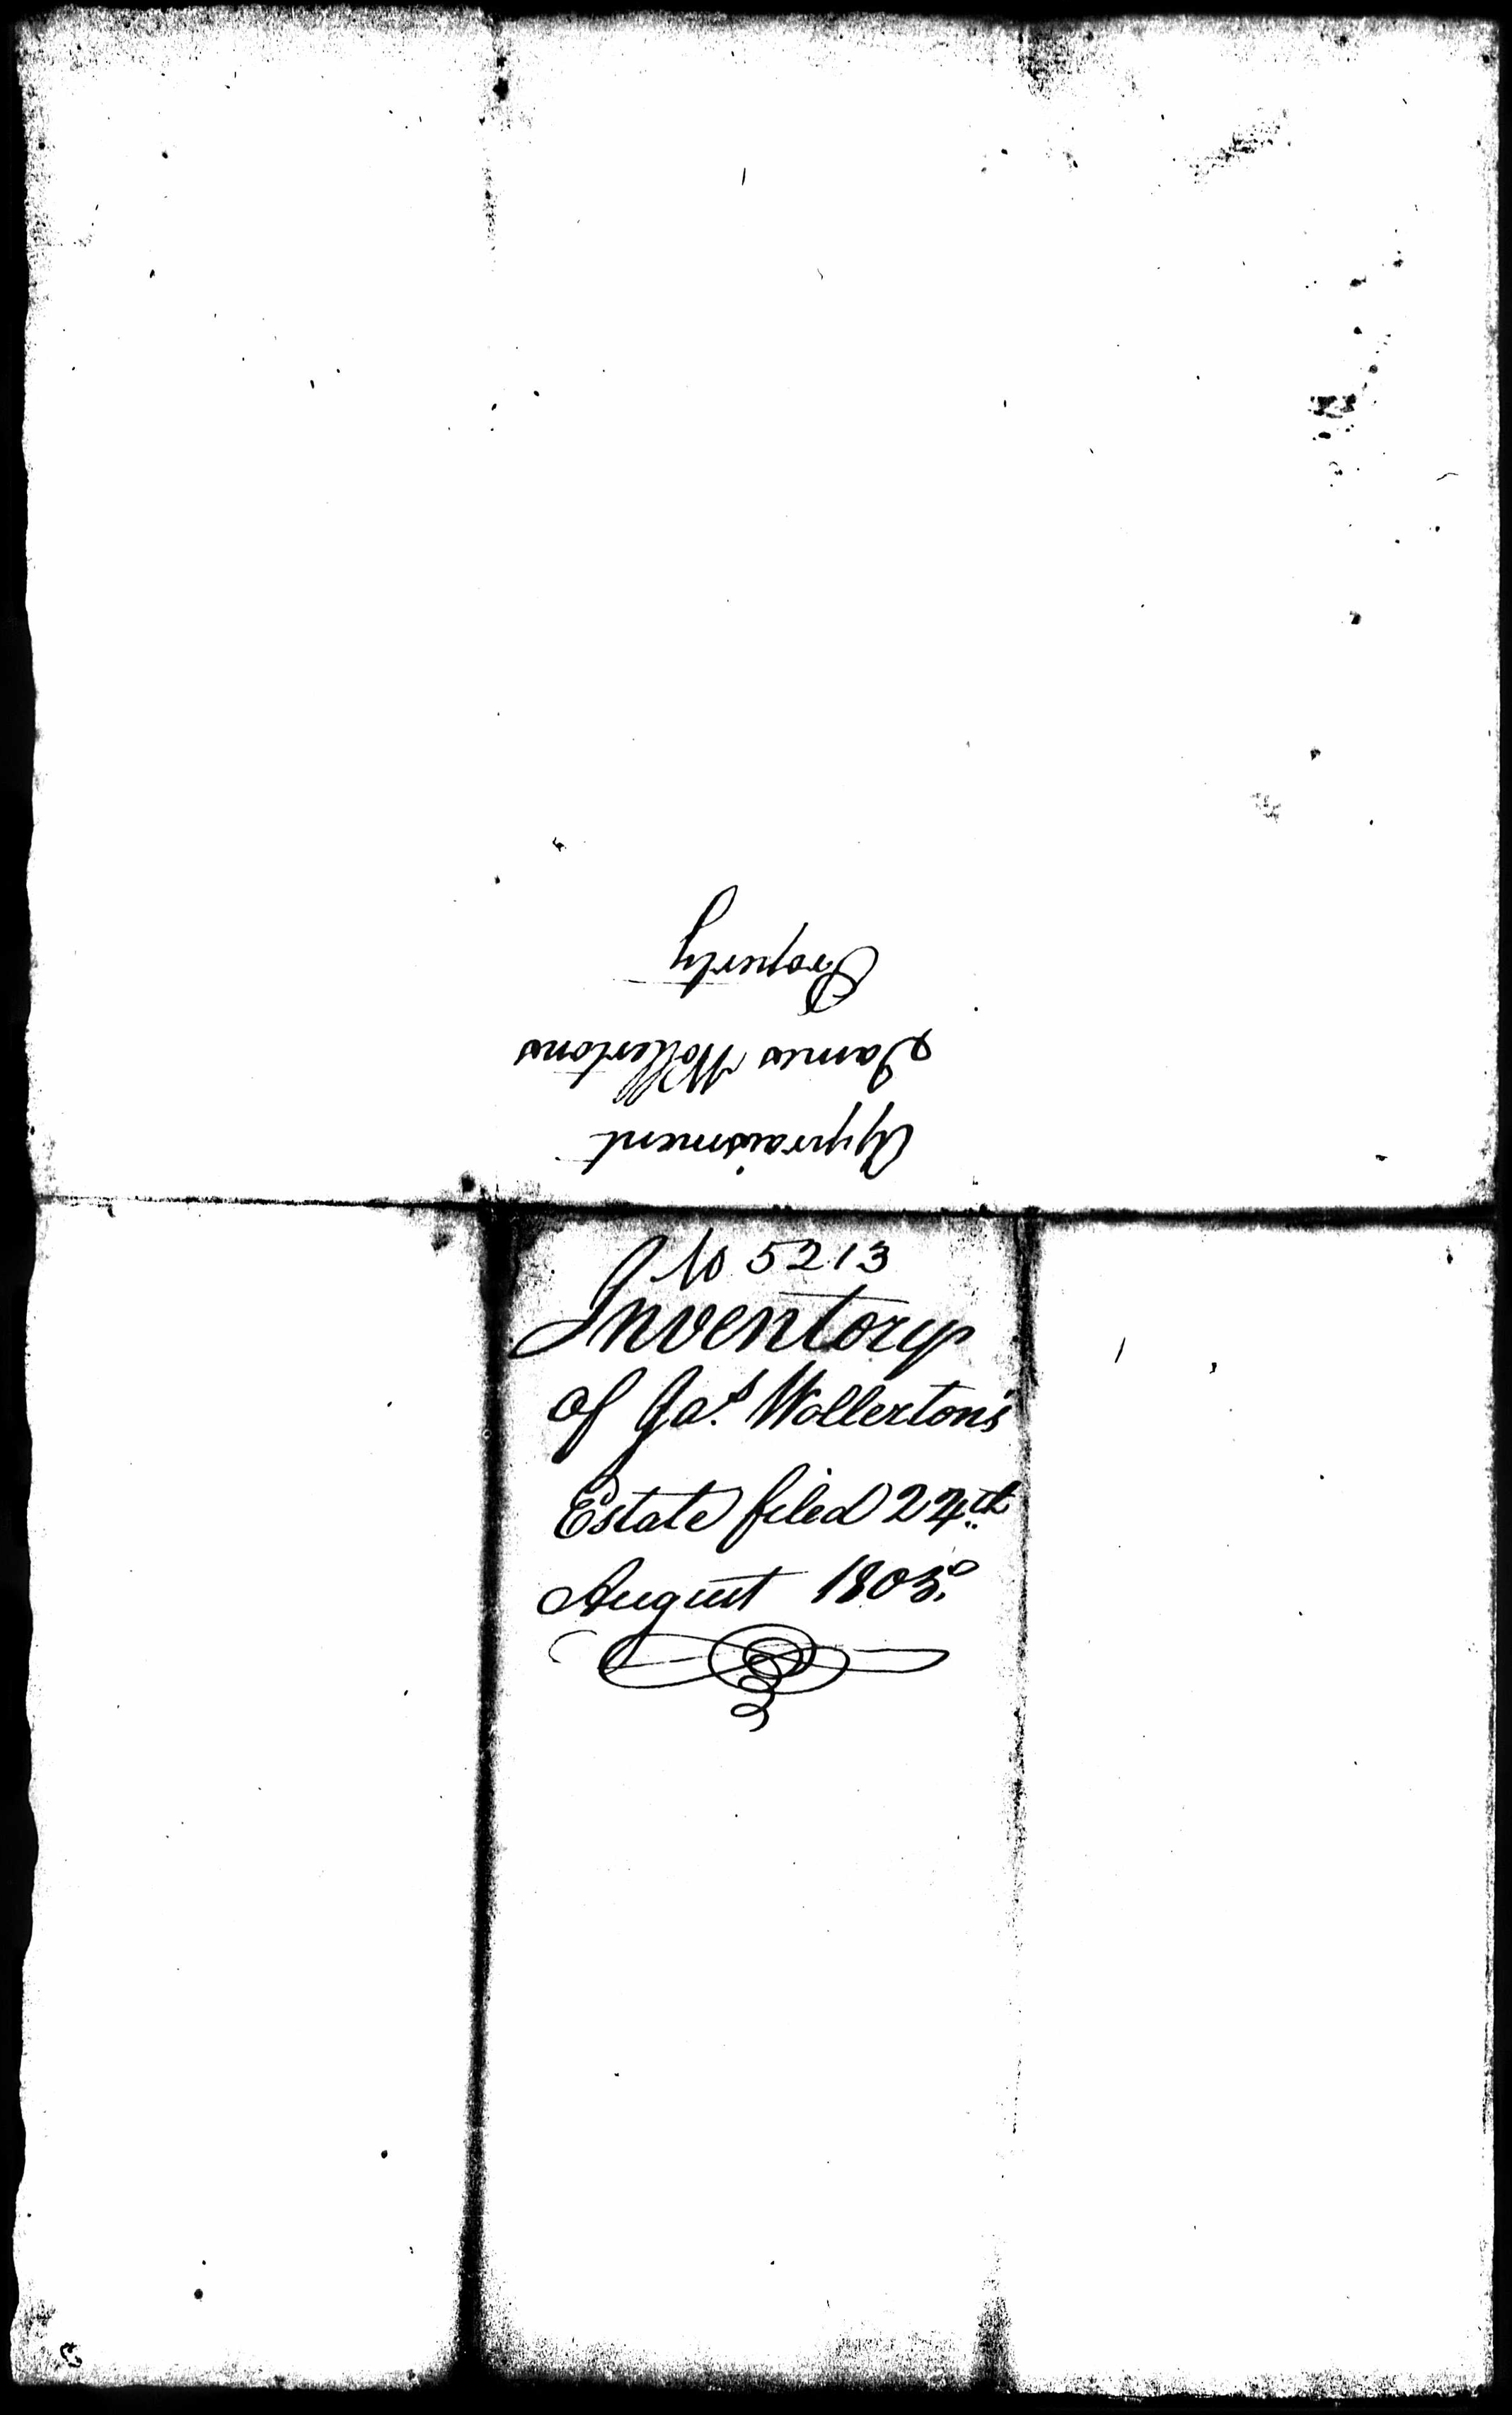 Appraisment
James Wollertons
Property
No 5213
Inventory
of Jas. Wollerton's
Estate filed 24th
August 1803.